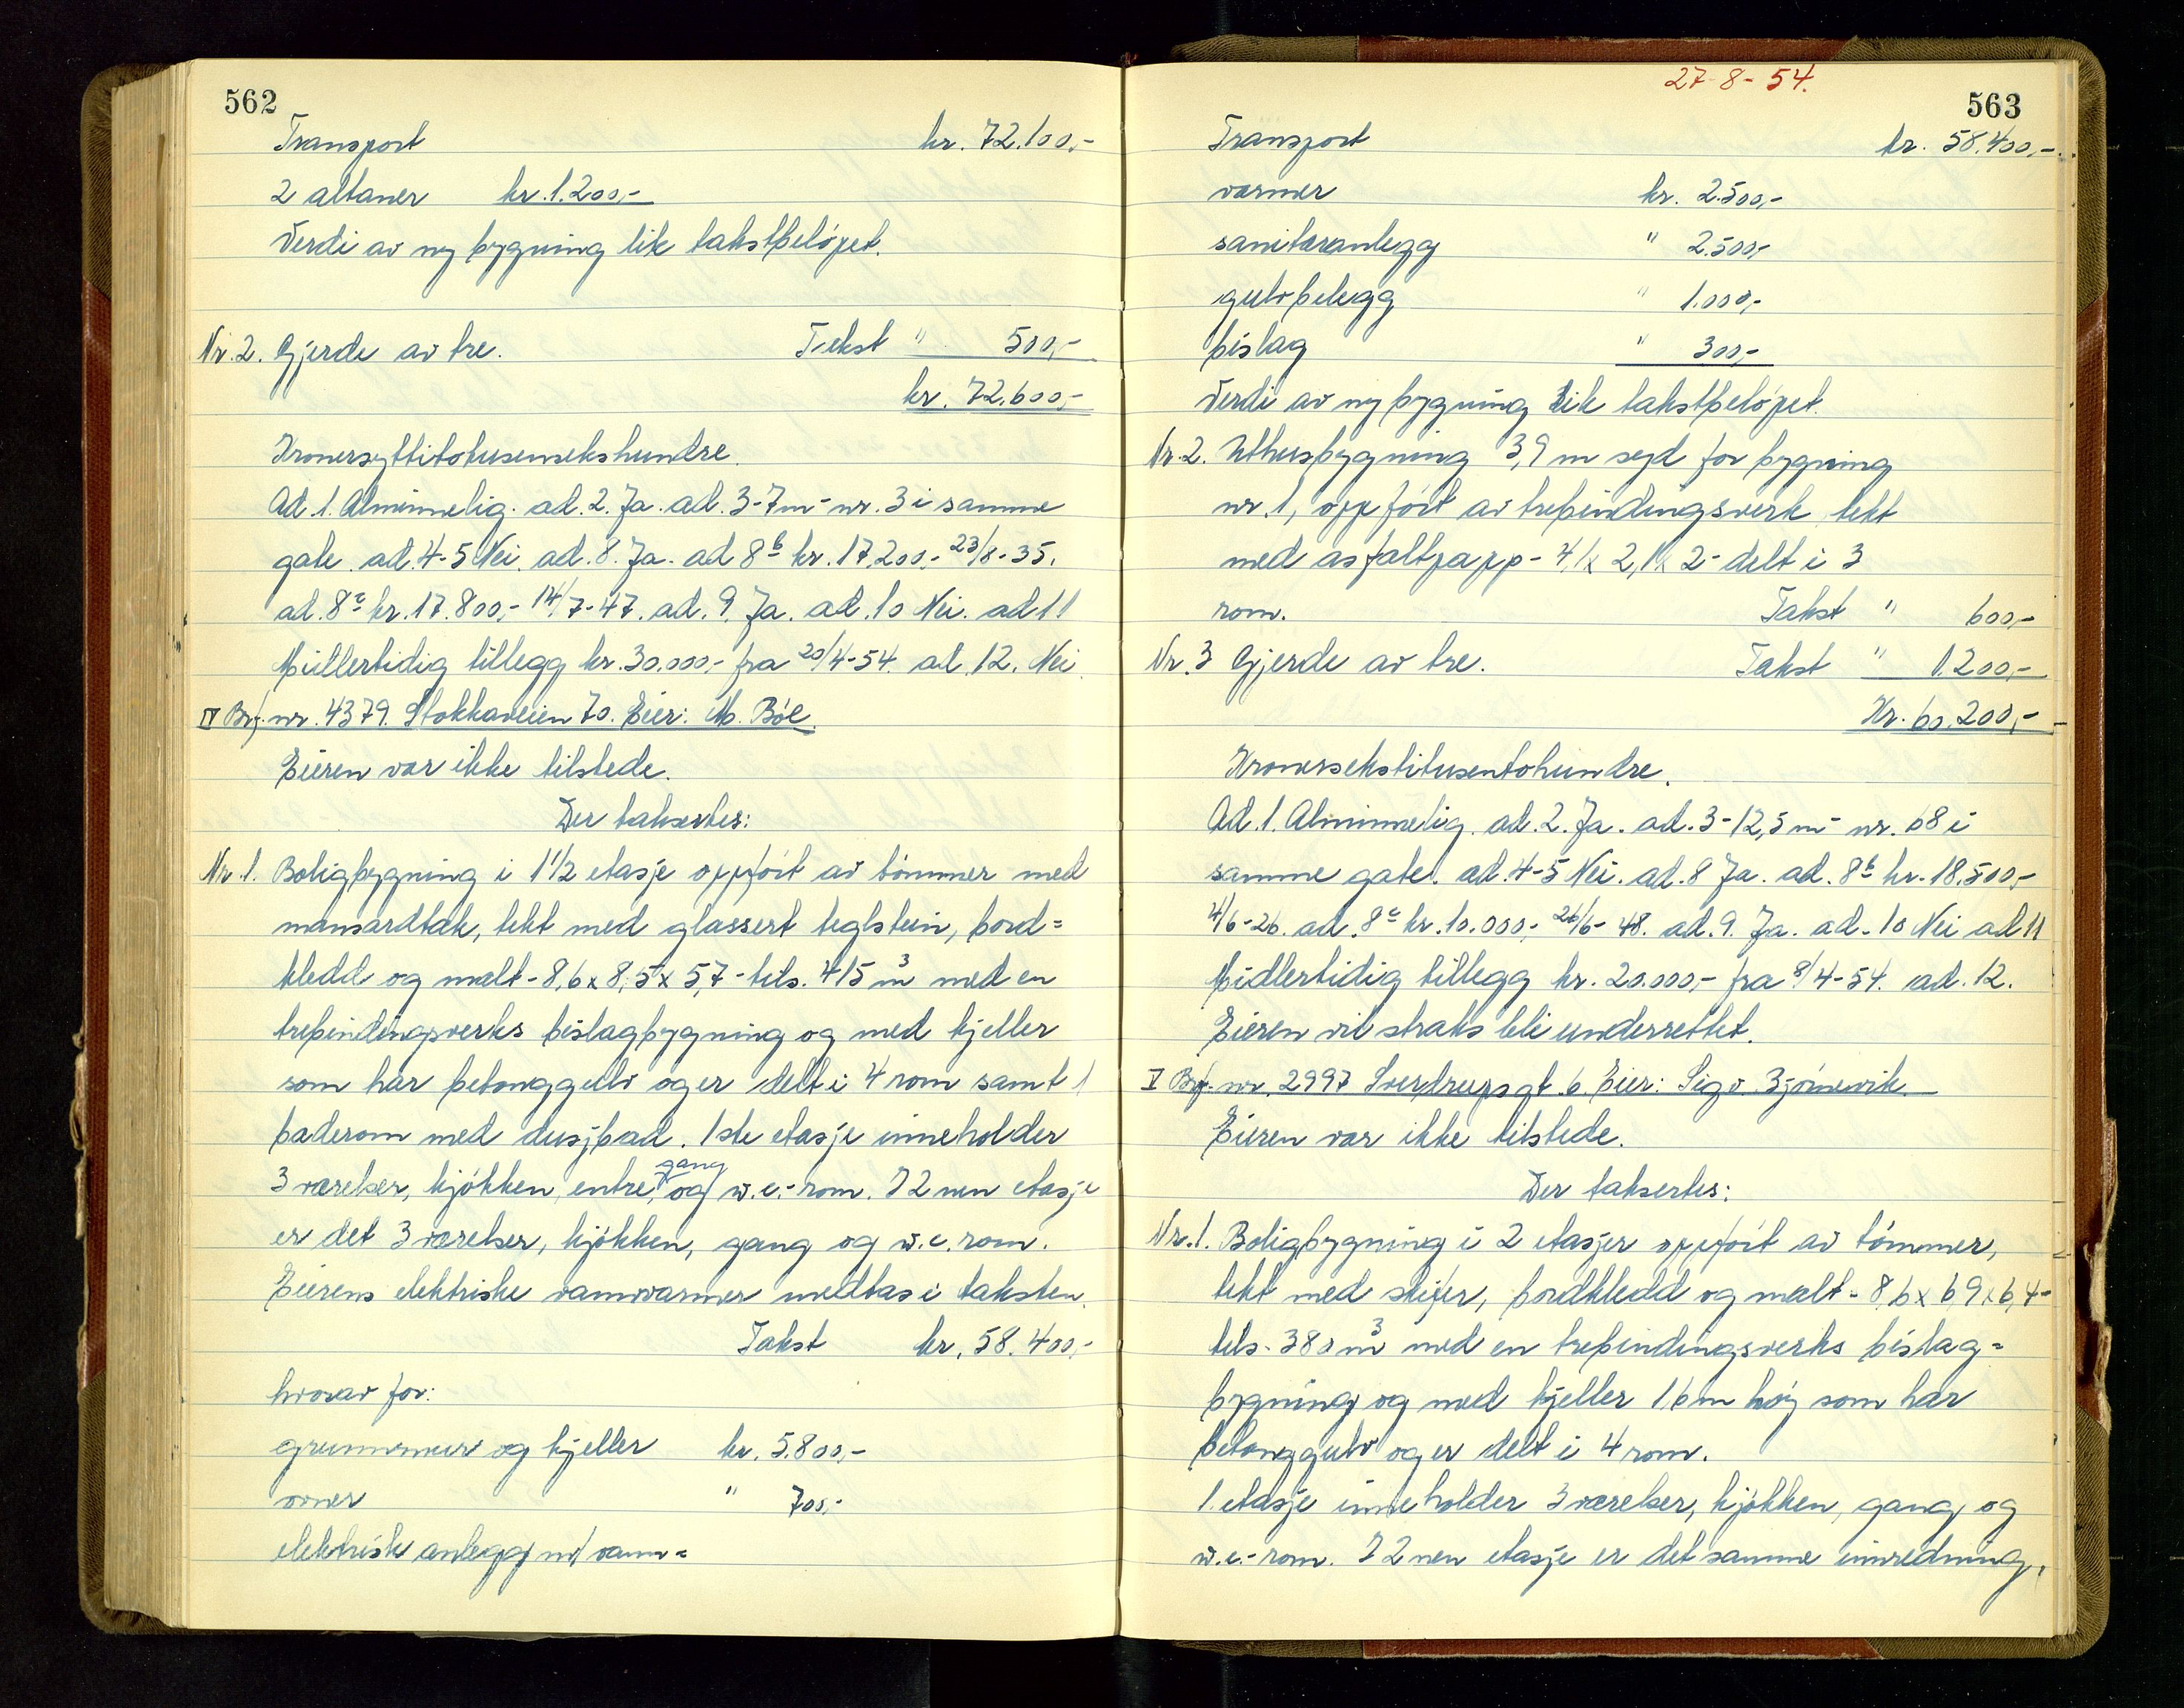 562
Transport kr. 72.100,-
2 altaner kr. 1.200,-
Verdi av ny bygning lik takstbeløpet.
Nr. 2. Gjerde av tre. Takst " 500,-
kr. 72.600,-
Kronersyttitotusensekshundre.
Ad. 1. Alminnelig. ad. 2. Ja. ad. 3-7 m - nr. 3 i samme
gate. ad. 4-5 Nei. ad. 8. Ja. ad 8b kr. 17.200,- 23/8-35.
ad. 8c kr. 17.800,- 14/7-47. ad. 9. Ja. ad. 10 Nei. ad 11
Midlertidig tillegg kr. 30.000,- fra 20/4-54. ad. 12. Nei.
IV Brf. nr. 4379. Stokkaveien 70. Eier: M. Bøe
Eieren var ikke tilstede.
Der taksertes:
Nr. 1. Boligbygning i 1 1/2 etasje oppført av tømmer med
mansardtak, tekt med glassert teglstein, bord=
kledd og malt - 8,6 x 8,5 x 5,7 - tils. 415 m3 med en
trebindingsverks bislagbygning og med kjeller
som har betonggulv og er delt i 4 rom samt 1
baderom med dusjbad. 1ste etasje inneholder
3 værelser, kjøkken, entre, gang og w.c.-rom. I 2nen etasje
er det 3 værelser, kjøkken, gang og w.c. rom.
Eierens elektriske vannvarmer medtas i taksten.
Takst kr. 58.400,-
hvorav for:
grunnmur og kjeller kr. 5.800,-
ovner " 700,-
elektrisk anlegg m/ vann=
27-8-54.
563
Transport kr. 58.400,-
varmer kr. 2.500,-
sanitæranlegg " 2.500,-
gulvbelegg " 1.000,-
bislag " 300,-
Verdi av ny bygning lik takstbeløpet.
Nr. 2. Uthusbygning 3,9 m syd for bygning
nr. 1, oppført av trebindingsverk, tekt
med asfaltpapp - 4,1 x 2,1 x 2 - delt i 3
rom. Takst " 600,-
Nr. 3 Gjerde av tre. Takst " 1.200,-
Kr. 60.200,-
Kronersekstitusentohundre.
Ad. 1. Alminnelig. ad. 2. Ja. ad. 3-12,5 m - nr. 68 i
samme gate. ad. 4-5 Nei. ad. 8 Ja. ad. 8b kr. 18.500,-
4/6-26. ad. 8c kr. 10.000,- 26/6-48. ad. 9. Ja. ad. 10 Nei ad 11
Midlertidig tillegg kr. 20.000,- fra 8/4-54. ad. 12.
Eieren vil straks bli underrettet.
V Brf. nr. 2997 Sverdrupsgt. 6. Eier: Sigv. Bjørnevik
Eieren var ikke tilstede.
Der taksertes:
Nr. 1. Boligbygning i 2 etasjer oppført av tømmer,
tekt med skifer, bordkledd og malt - 8,6 x 6,9 x 6,4 -
tils. 380 m3 med en trebindingsverks bislag=
bygning og med kjeller 1,6 m høy som har
betonggulv og er delt i 4 rom.
1. etasje inneholder 3 værelser, kjøkken, gang og
w.c.-rom. I 2nen etasje er det samme innredning,